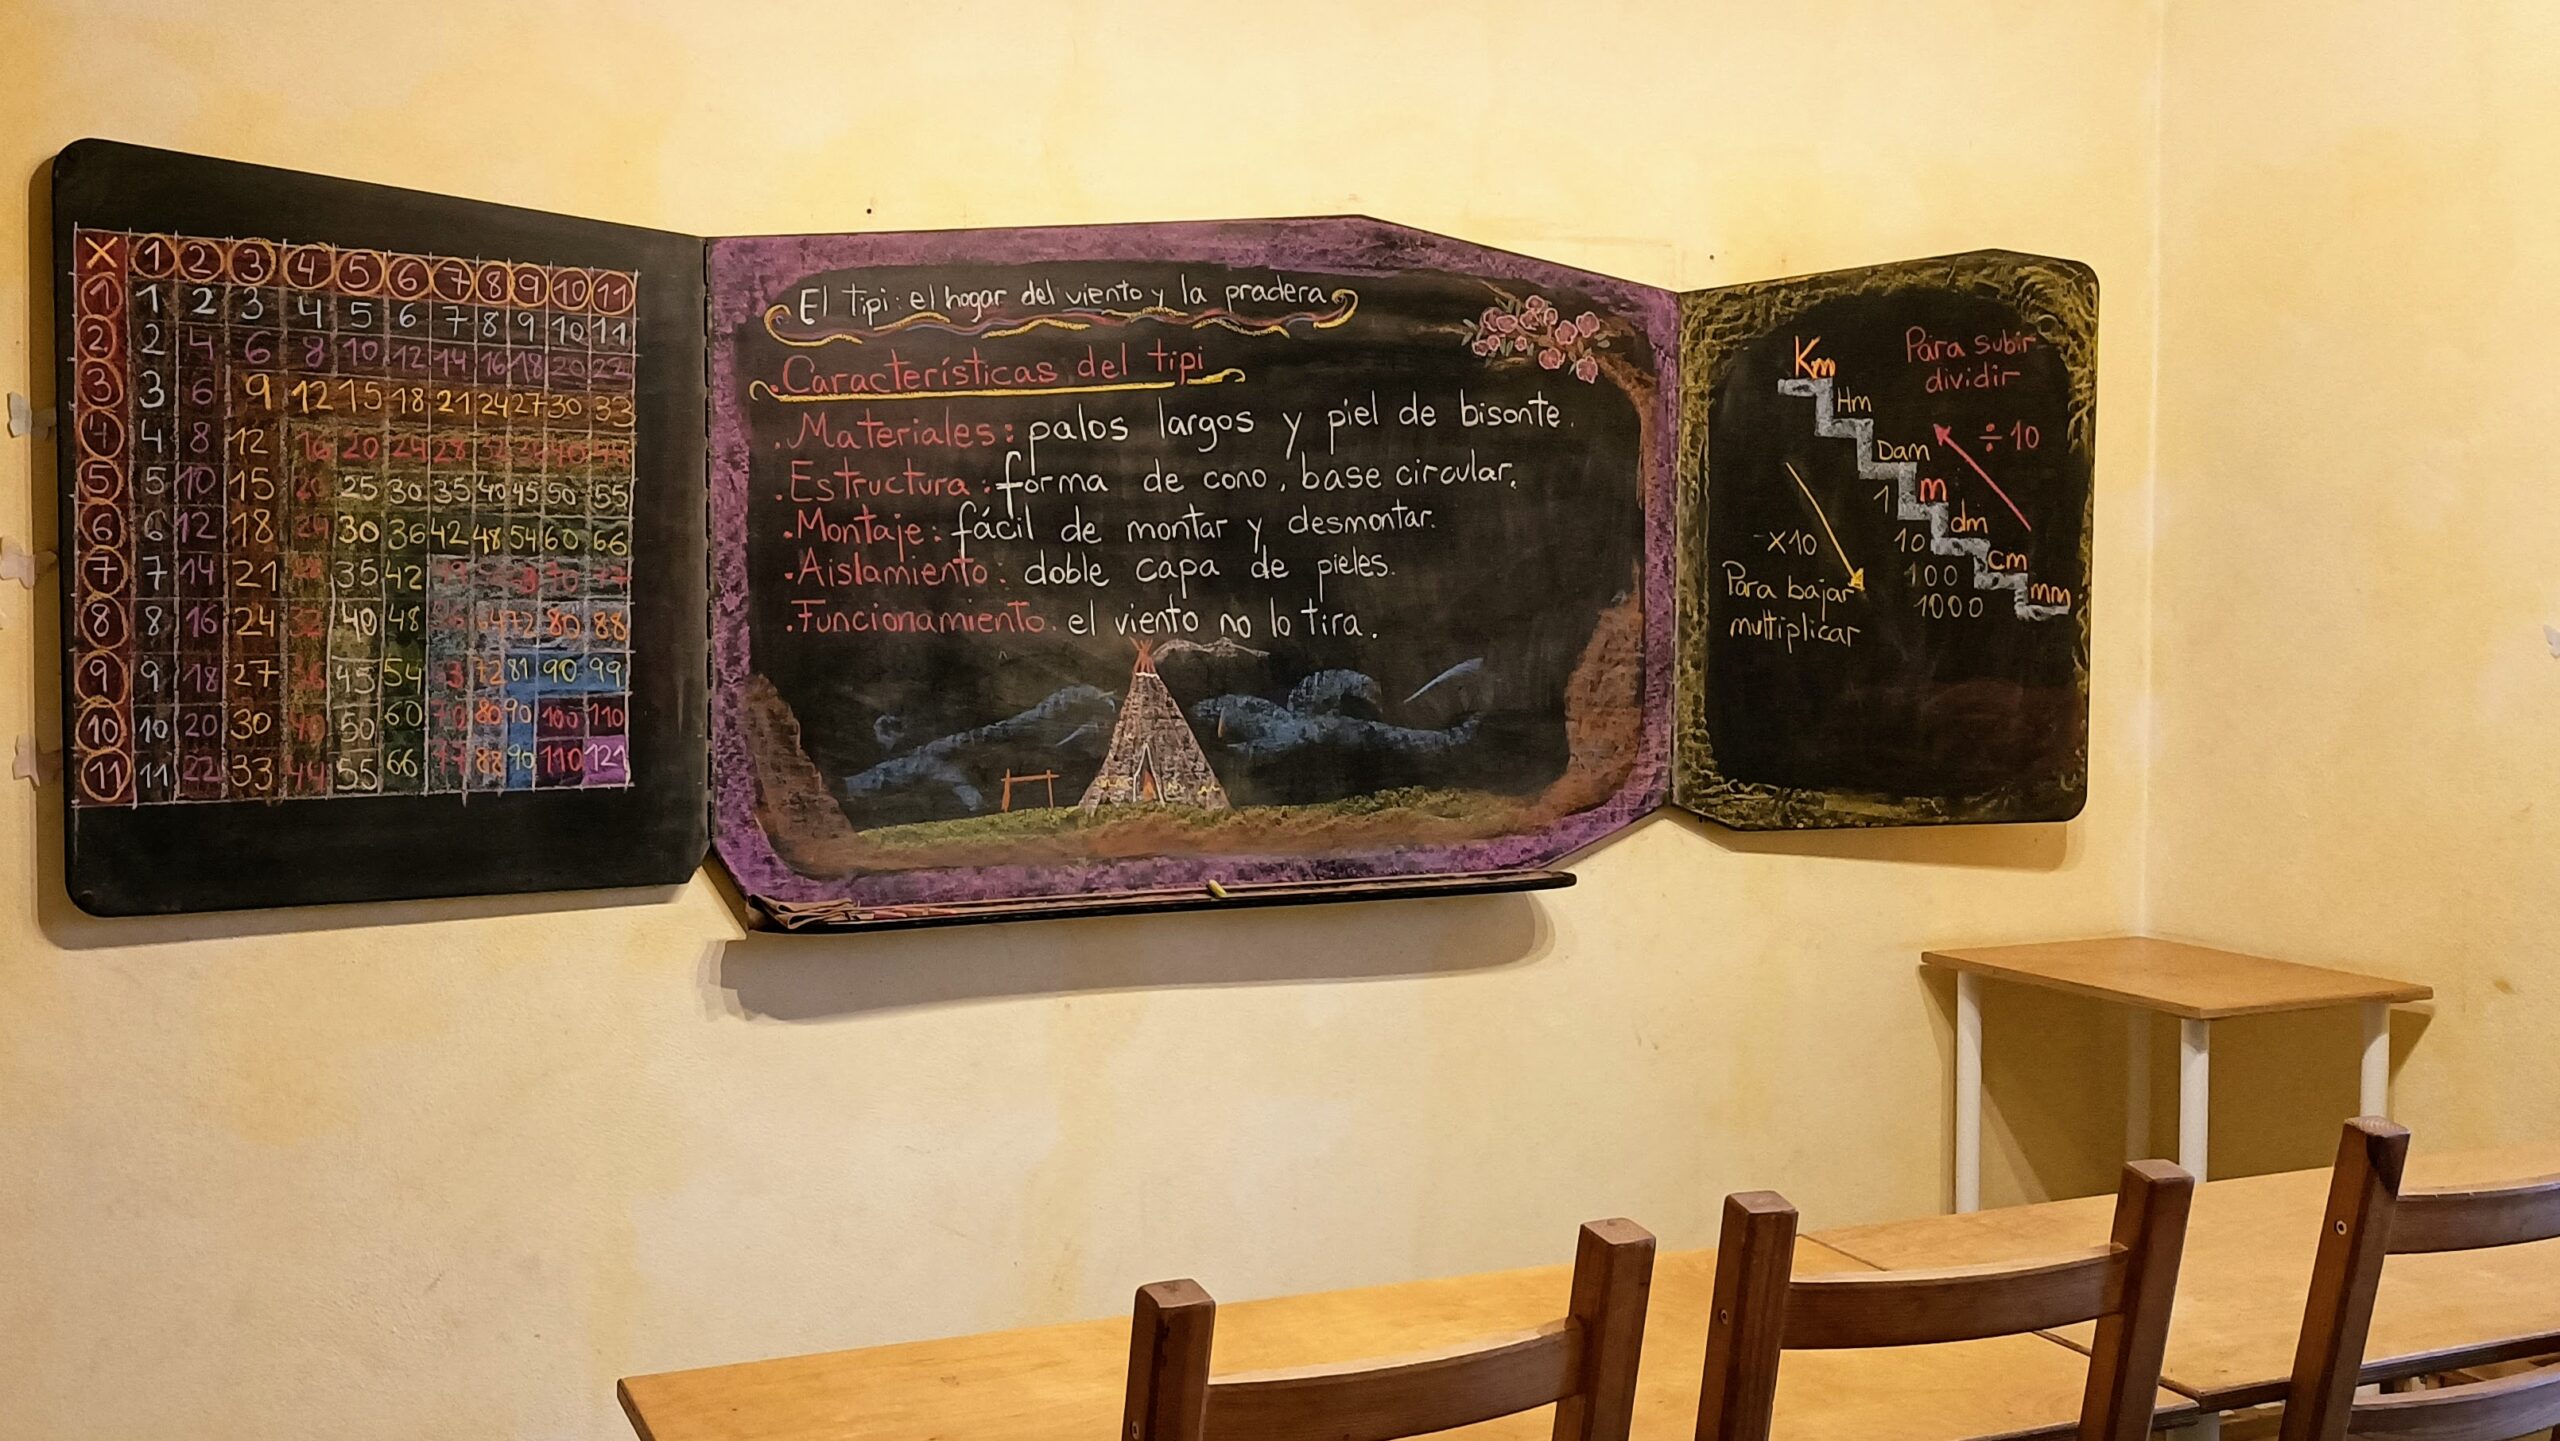 X 1 2 3 4 5 6 7 8 9 10 11
1 1 2 3 4 5 6 7 8 9 10 11
2 2 4 6 8 10 12 14 16 18 20 22
3 3 6 9 12 15 18 21 24 27 30 33
4 4 8 12 16 20 24 28 32 36 40 44
5 5 10 15 20 25 30 35 40 45 50 55
6 6 12 18 24 30 36 42 48 54 60 66
7 7 14 21 28 35 42 70 77
8 8 16 24 32 40 48 56 64 72 80 88
9 9 18 27 36 45 54 72 81 90 99
10 10 20 30 40 50 60 70 80 90 100 110
11 11 22 33 44 55 66 77 88 90 110 121
El tipi: el hogar del viento y la pradera
.Características del tipi
.Materiales: palos largos y piel de bisonte.
.Estructura: forma de cono, base circular.
.Montaje: fácil de montar y desmontar.
.Aislamiento: doble capa de pieles.
.Funcionamiento: el viento no lo tira.
Km
Hm
Dam
1 m
10 dm
100 cm
1000 mm
Para subir
dividir
÷10
x10
Para bajar
multiplicar